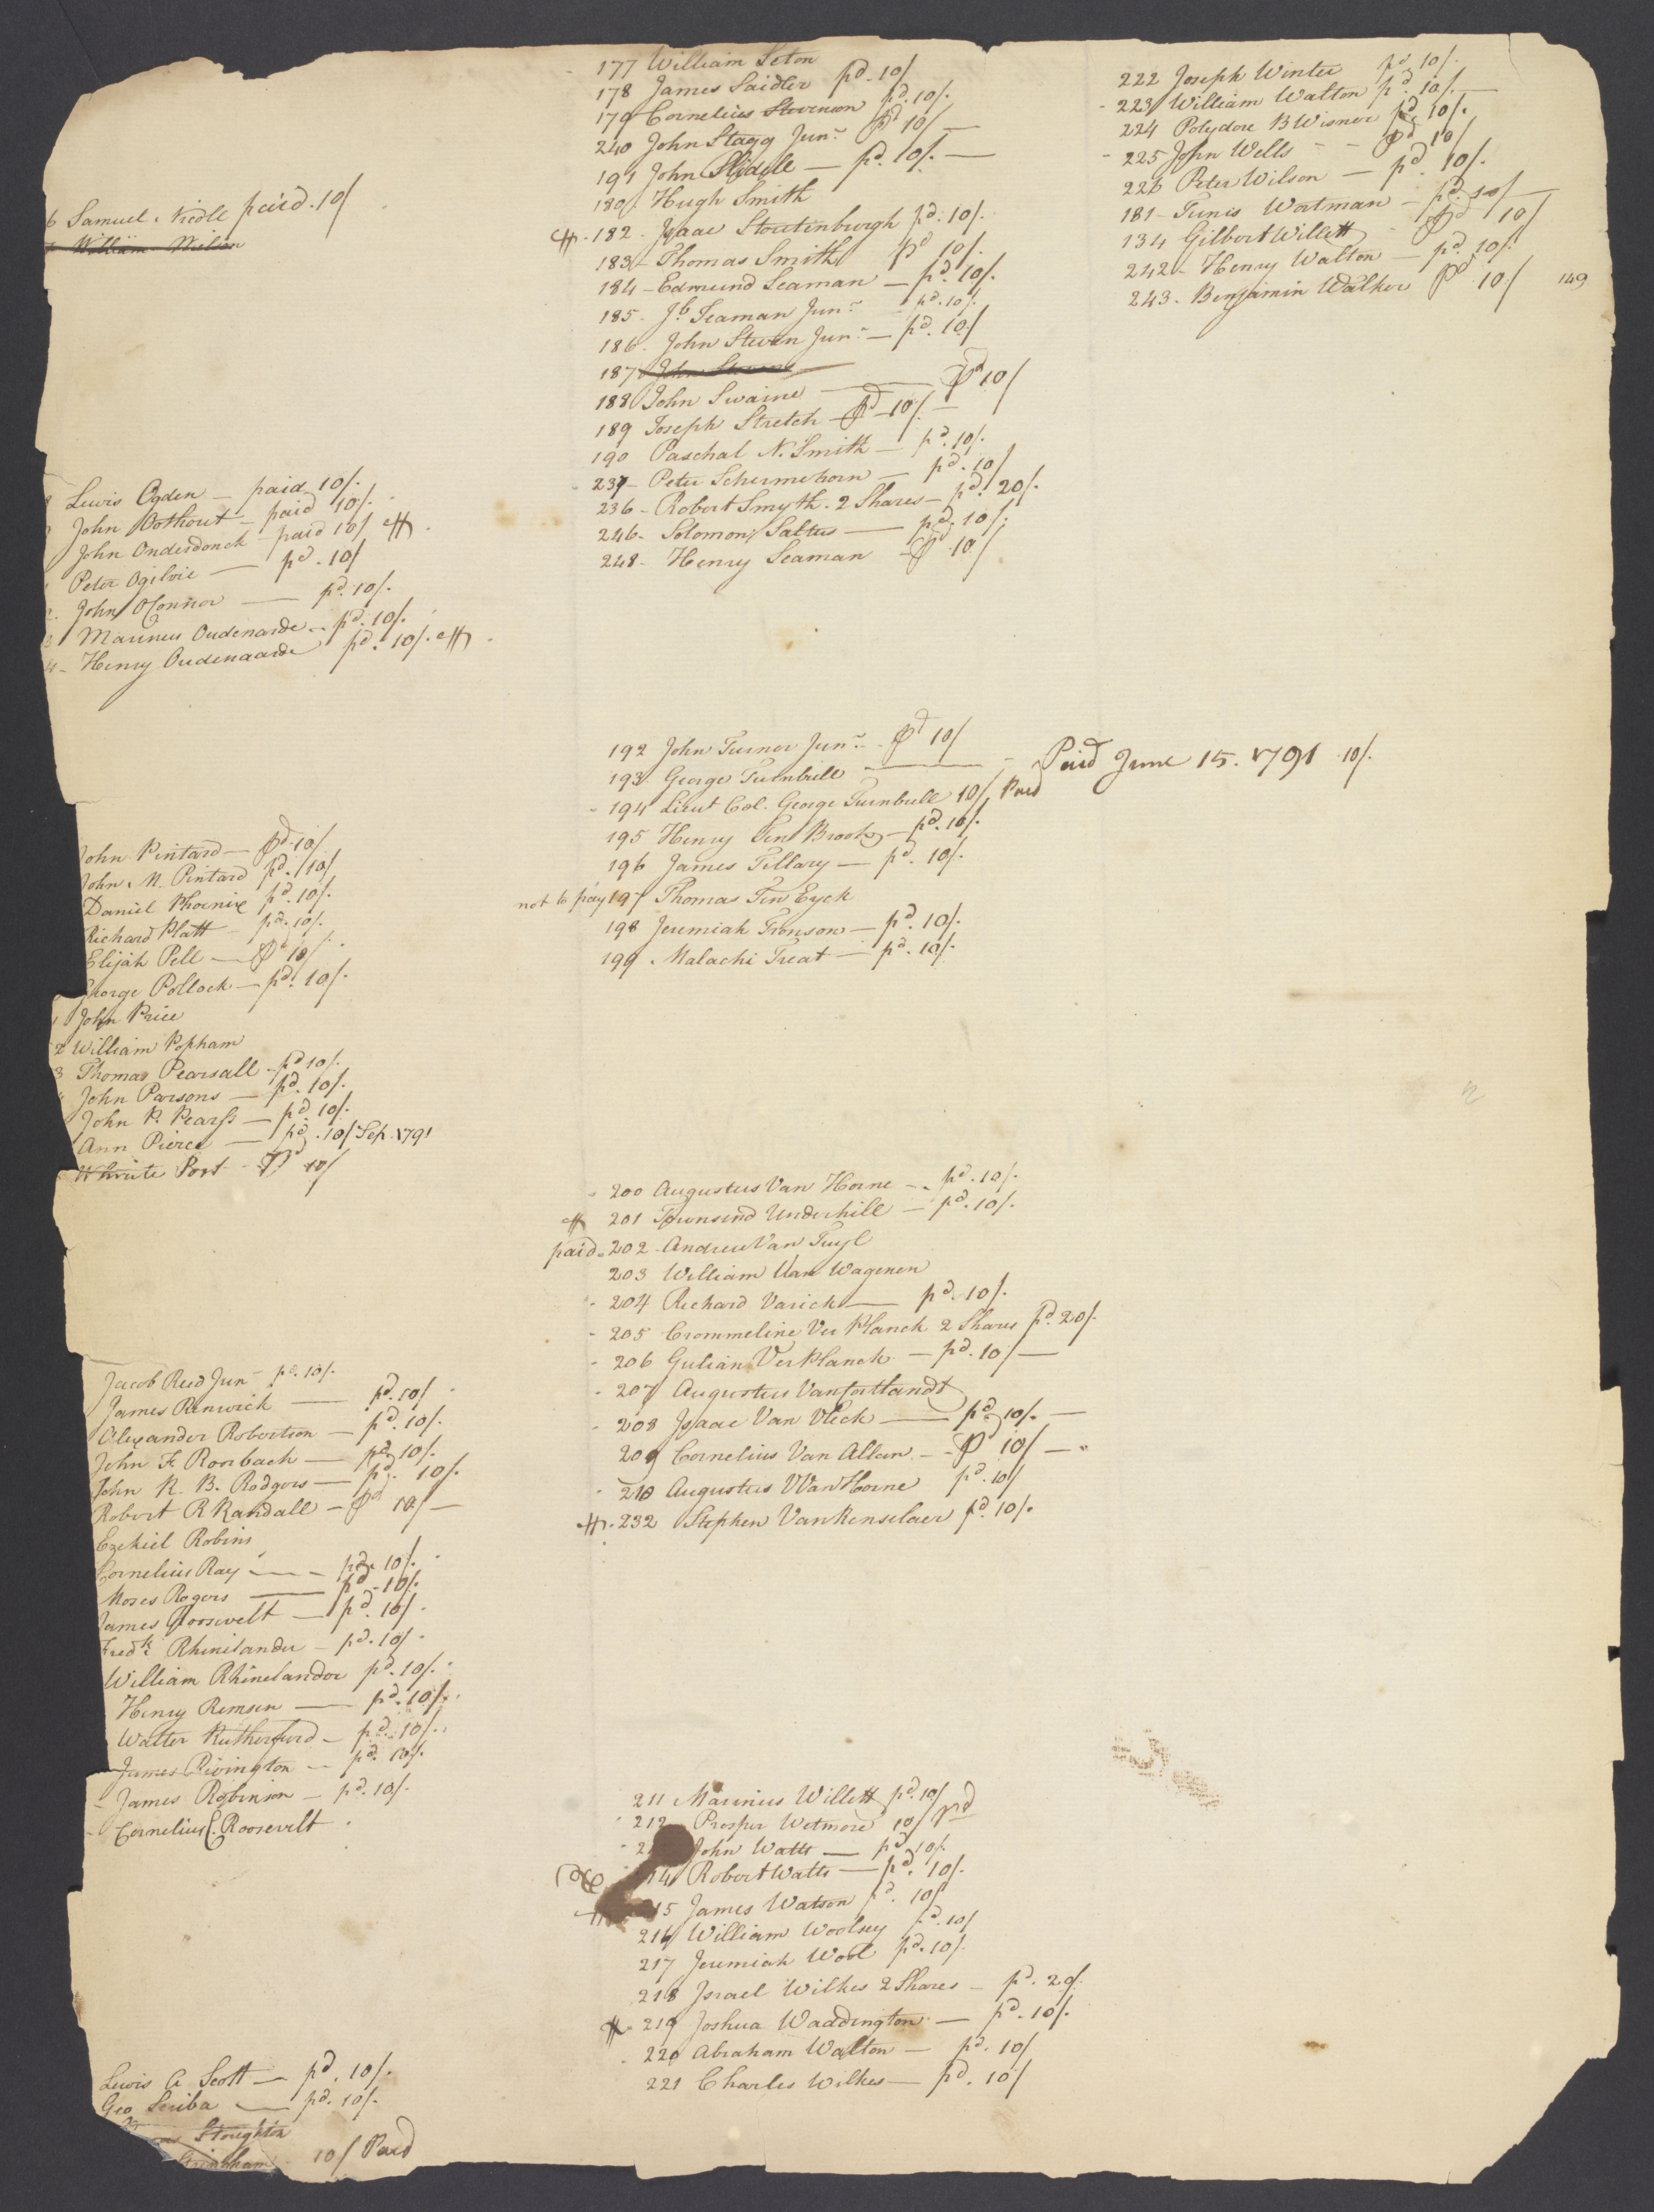 6 Samuel Nicoll paid. 10/
William
Lewis Ogden — paid 10/.
John Oothout — paid 10/.
John Onderdonck paid 10/
Peter Ogilvie — pd. 10/
John OConnor — pd. 10/.
3 Marinus Oudenarde — pd. 10/.
4 - Henry Oudenaarde pd. 10/.
John Pintard — Pd 10/
John M. Pintard pd. 10/
Daniel Phoenix pd. 10/.
Richard Platt pd. 10/.
Elijah Pell — Pd 10/
George Pollock — pd. 10/.
1 John Price
2 William Popham
3 Thomas Pearsall - pd 10/.
John Parsons — pd. 10/.
John P. Pearss — pd. 10/.
Ann Pierce — pd. 10/ Sep. 1791
White Post - Pd 10/
Jacob Reed Junr pd. 10/.
James Renwick — pd. 10/
Alexander Robertson — pd. 10/.
John F. Roorbach — pd. 10/.
John R. B. Rodgers — pd. 10/.
Robert R Randall — Pd 10/ —
Ezekiel Robins
Cornelius Ray — pd. 10/.
Moses Rogers — pd - 10/.
James Roosevelt — pd. 10/.
Fredk Rhinelander — pd. 10/.
William Rhinelander pd. 10/.
Henry Remsen — pd. 10/.
Walter Rutherfurd — pd. 10/.
James Rivington — pd. 10/.
- James Robinson — pd. 10/.
- Cornelius C. Roosevelt
Lewis A Scott — pd. 10/.
Geo Scriba — pd. 10/.
Stoughton
Stringham 10/ Paid
177 William Seton
178 James Saidler pd. 10/
179 Cornelius Stevenson pd. 10/.
240 John Stagg Junr Pd 10/ —
191 John Slidell — pd. 10/. —
180 - Hugh Smith
182 - Isaac Stoutenburgh pd. 10/.
183 - Thomas Smith pd 10/.
184 - Edmund Seaman — pd. 10/.
185 - Jb Seaman Junr pd. 10/.
186 - John Steven Junr — pd. 10/
187 John Stevens
188 John Swaine — Pd 10/
189 Joseph Stretch — Pd 10/. —
190 Paschal N. Smith — pd. 10/.
237 - Peter Schermehorn — pd. 10/
236 - Robert Smyth. 2 Shares — pd. 20/.
246 - Solomon Saltus — pd. 10/.
248 - Henry Seaman - Pd 10/
192 John Turner Junr - Pd 10/
193 George Turnbull — Paid June 15. 1791 10/.
- 194 Lieut Col. George Turnbull 10/ Paid
195 Henry Ten Brook — pd. 10/.
196 James Tillary — pd. 10/.
not to pay 197 Thomas Ten Eyck
198 Jeremiah Tronson — pd. 10/.
199 Malachi Treat — pd. 10/.
- 200 Augustus Van Horne — pd. 10/.
201 Townsend Underhill — pd. 10/.
paid - 202 - Andrew Van Tuyl
203 William Van Wagenen
- 204 Richard Varick — pd. 10/.
- 205 Crommeline Ver Planck 2 Shares pd. 20/.
- 206 Gulian VerPlanck — pd. 10/ —
- 207 Augustus VanCortlandt
- 208 Isaac Van Vleck — pd. 10/. —
209 Cornelius Van Allen — Pd 10/ —
- 210 Augustus V VanHorne pd. 10/
232 Stephen VanRenselaer pd. 10/.
211 Marinus Willett pd. 10/
- 212 Prosper Wetmore 10/ Pd
- 21 John Watts — pd 10/.
14 Robert Watts — pd. 10/.
15 James Watson pd. 10/
216 William Woolsey pd. 10/
217 Jeremiah Wool pd. 10/.
218 Israel Wilkes 2 Shares — pd. 20/.
219 Joshua Waddington — pd. 10/.
- 220 Abraham Walton — pd. 10/
221 Charles Wilkes — pd. 10/
222 Joseph Winter pd. 10/.
- 223 William Walton pd. 10/. —
224 Polydore B Wisner pd. 10/.
- 225 John Wells - - Pd 10/
226 Peter Wilson — pd. 10/.
181 - Tunis Wortman — pd. 10/ —
134 Gilbert Willett - Pd 10/
242 - Henry Walton — pd. 10/.
243 - Benjamin Walker Pd 10/ 149
2